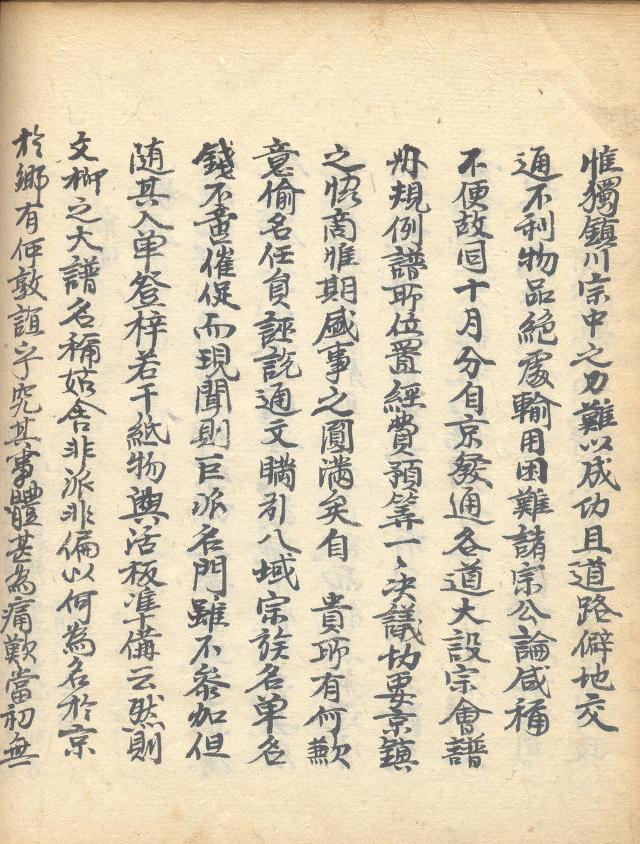 惟獨鎭川宗中之力難以成功且道路僻地交
通不利物品絶處輸用困難諸宗公論咸稱
不便故同十月分自京發通各道大設宗會譜
冊規例譜所位置經費預算一々決議切要京鎭
之恪商惟期盛事之圓滿矣自　貴所有何歉
意偷名任員誣說通文瞞引八域宗族名單名
錢不晝催促而現聞則巨派名門雖不參加但
随其入單登梓若干紙物與活板準備云然則
文柳之大譜名稱姑舍非派非偏以何為名於京
於鄉有何敦誼乎究其事軆甚為痛歎當初無